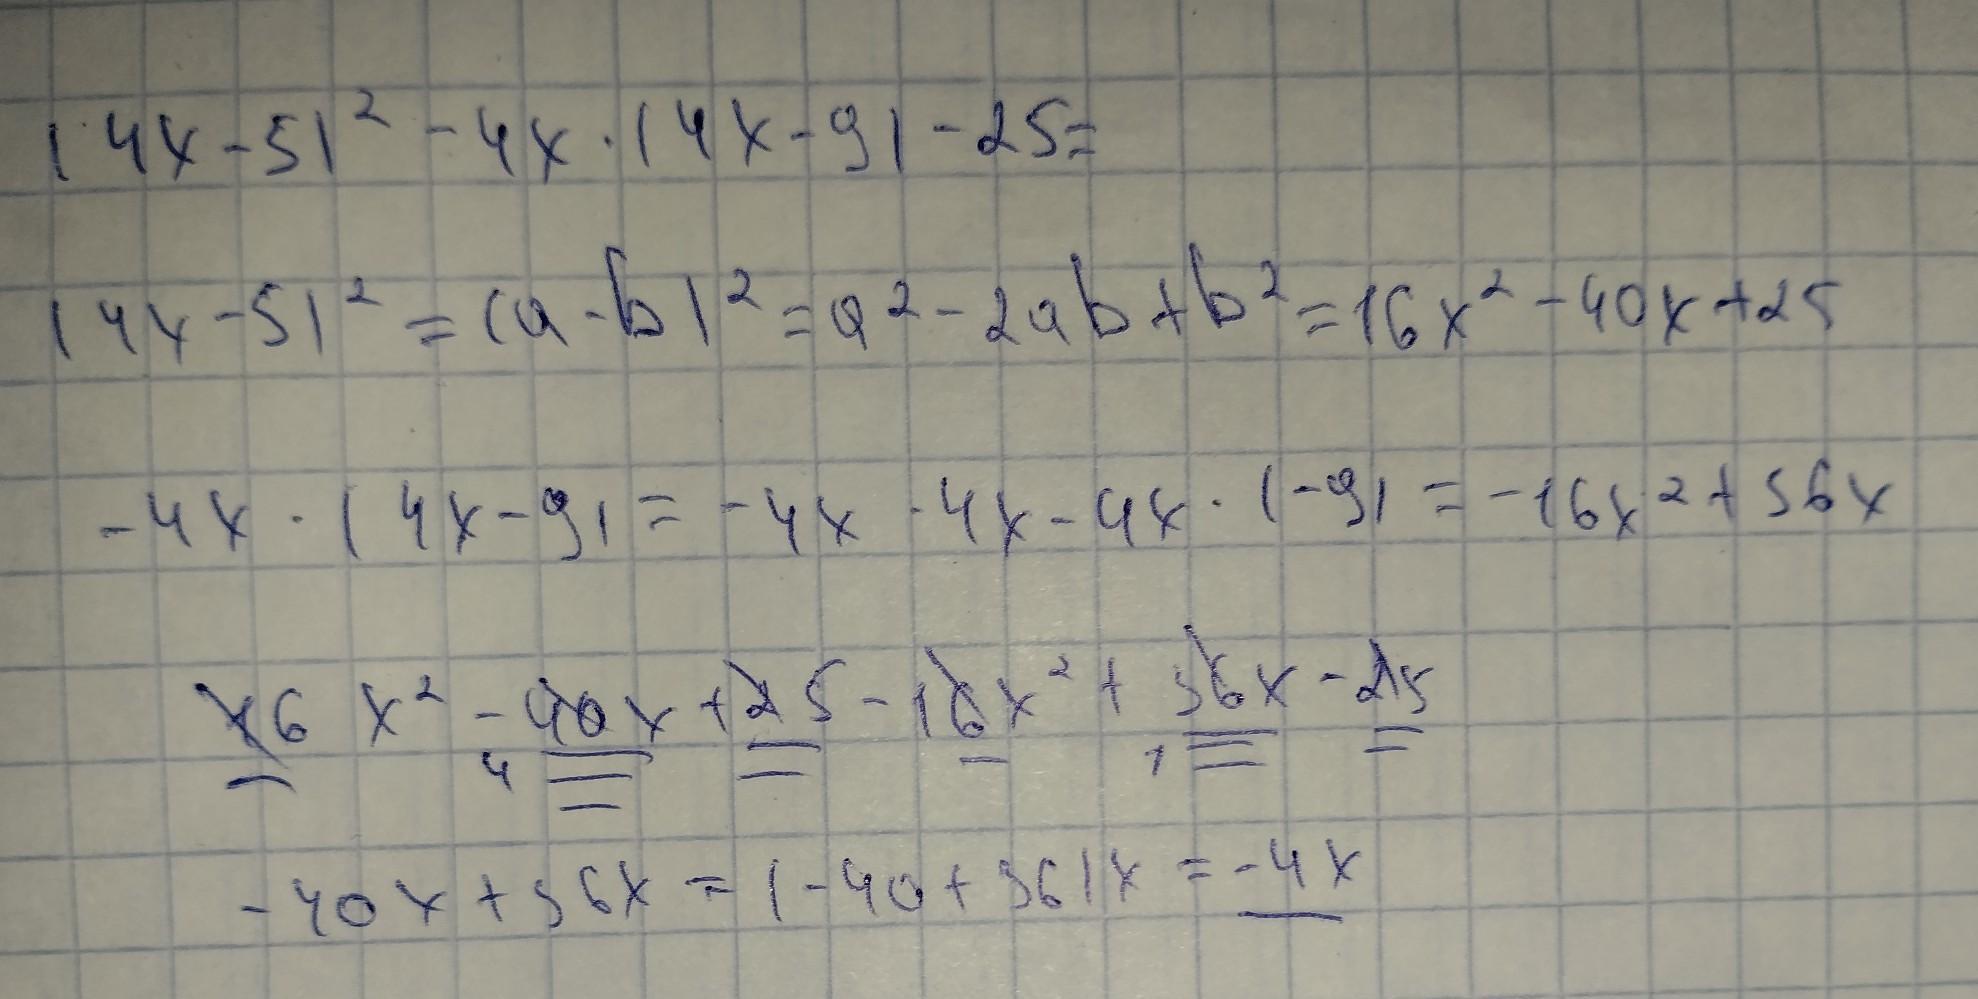 (4x-5)² -4x·(4x-9)-25=
(4x-5)² =(a-b)²=a²-2ab+b²=16x²-40x+25
-4x·(4x-9)=-4x·4x-4x·(-9)=-16x²+36x
16x²-40x+25-16x²+36x-25
-40x+36x=(-40+36)x=-4x